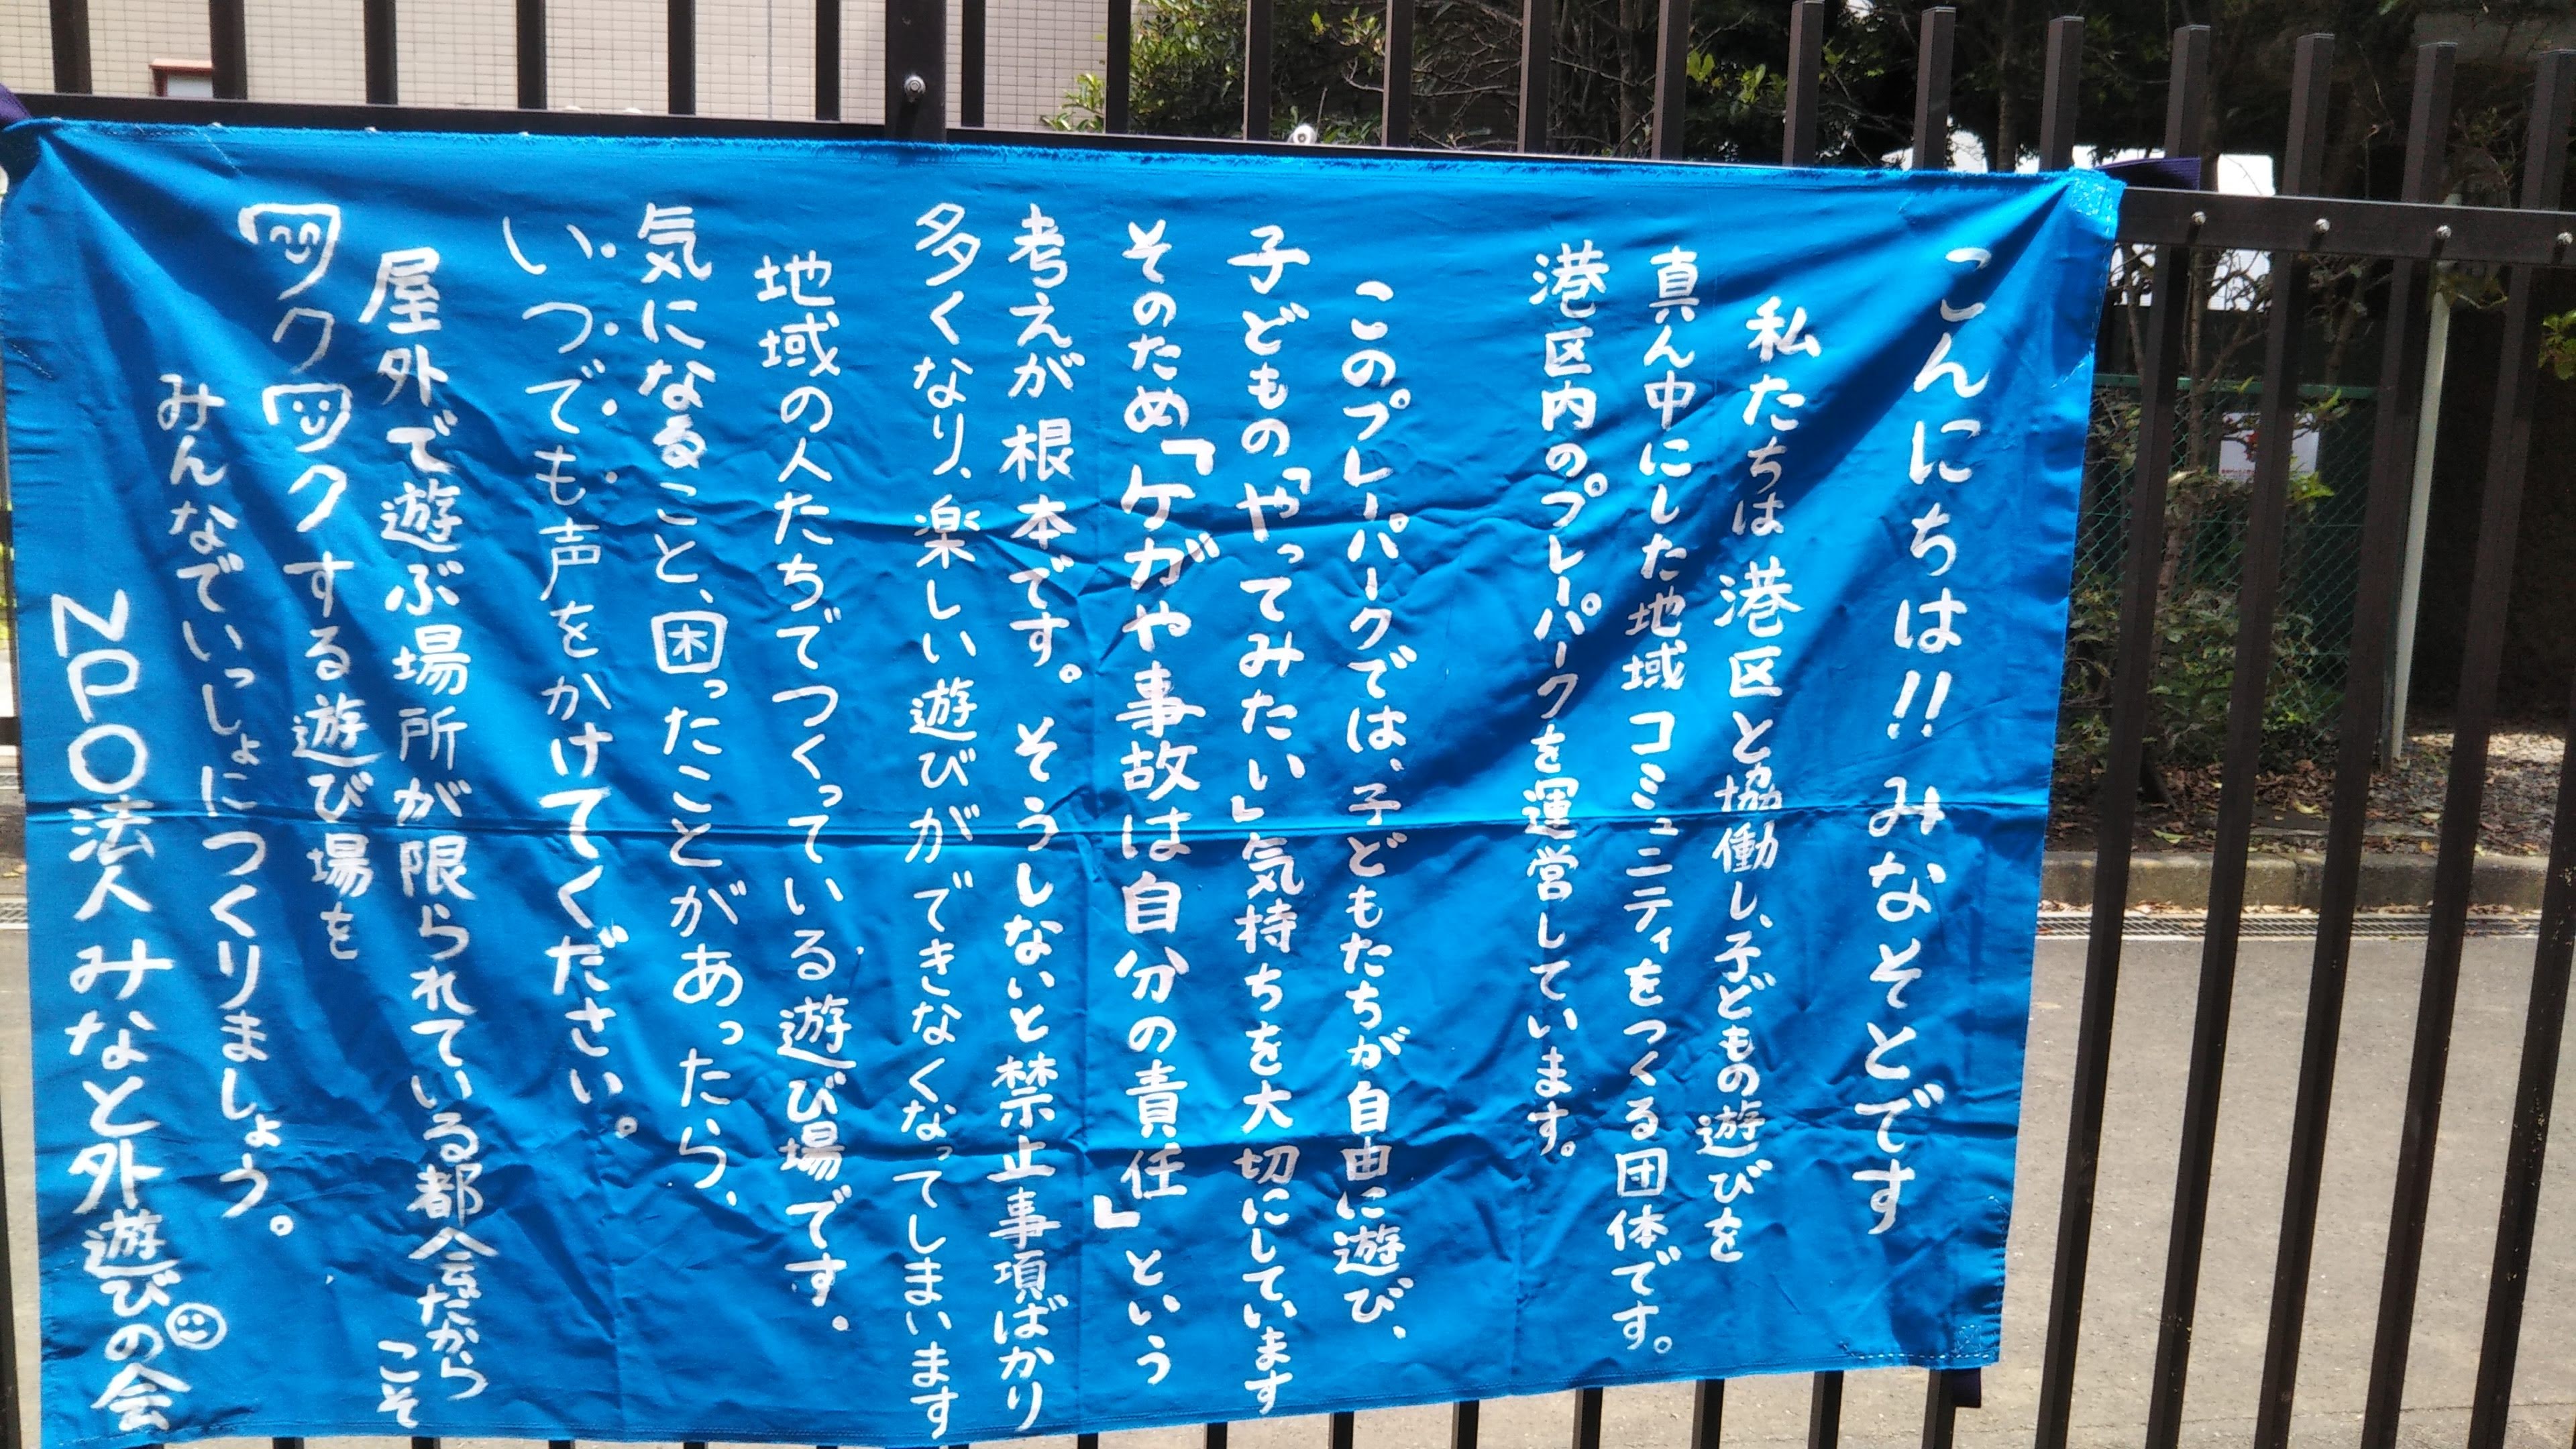 こんにちは!! みなそとです
私たちは港区と協働し、子どもの遊びを
真ん中にした地域コミュニティをつくる団体です。
港区内のプレーパークを運営しています。
このプレーパークでは、子どもたちが自由に遊び、
子どもの「やってみたい」気持ちを大切にしています
そのため「ケガや事故は自分の責任」という
考えが根本です。そうしないと禁止事項ばかり
多くなり、楽しい遊びができなくなってしまいます
地域の人たちでつくっている遊び場です。
気になること、困ったことがあったら、
いつでも声をかけてください。
屋外で遊ぶ場所が限られている都会だからこそ
ワクワクする遊び場を
みんなでいっしょにつくりましょう。
NPO法人みなと外遊びの会